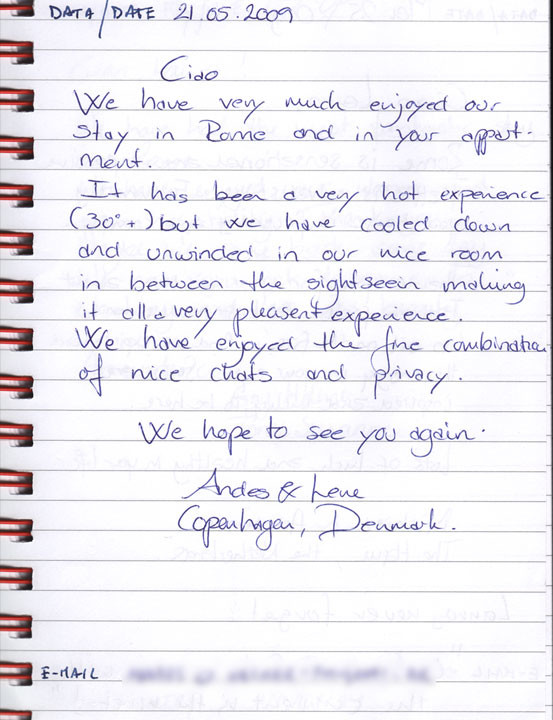 DATA/DATE 21.05.2009
Ciao
We have very much enjoyed our
stay in Rome and in your appart-
ment.
It has been a very hot experience
(30°+) but we have cooled down
and unwinded in our nice room
in between the sightseein making
it all a very pleasent experience.
We have enjoyed the fine combination
of nice chats and privacy.
We hope to see you again.
Andes & Lene
Copenhagen, Denmark.
E-MAIL